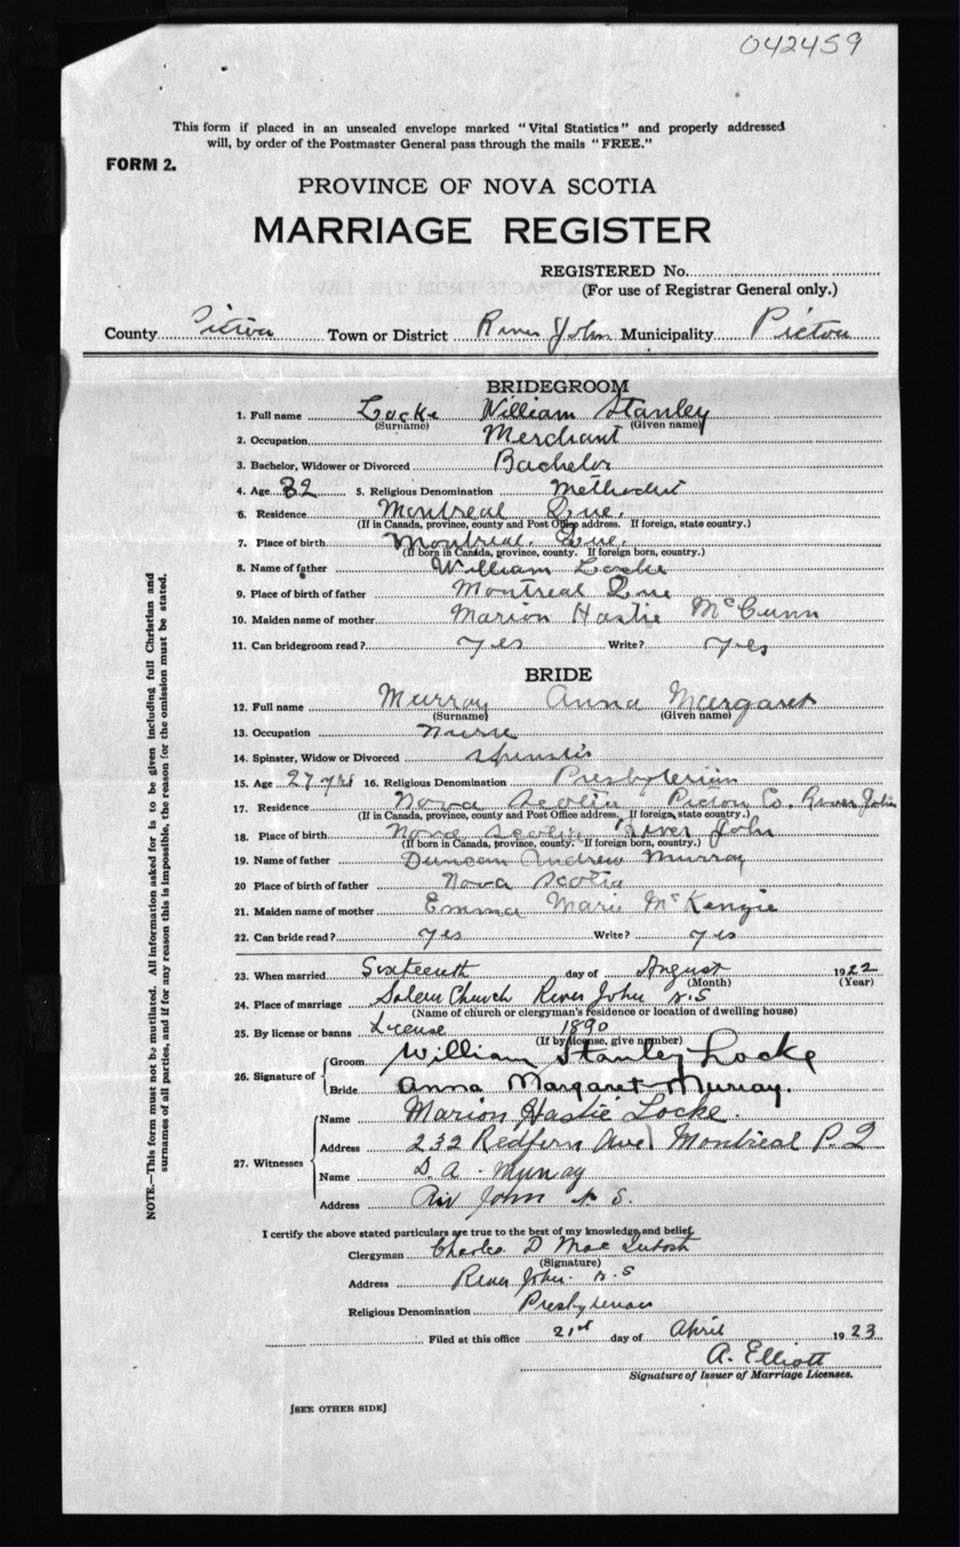 042459
This form if placed in an unsealed envelope marked "Vital Statistics" and properly addressed
will, by order of the Postmaster General pass through the mails "FREE."
FORM 2.
PROVINCE OF NOVA SCOTIA
MARRIAGE REGISTER
REGISTERED No.
(For use of Registrar General only.)
County Pictou Town or District River John Municipality Pictou
BRIDEGROOM
1. Full name Locke William Stanley
(Surname) (Given name)
2. Occupation Merchant
3. Bachelor, Widower or Divorced Bachelor
4. Age 32 5. Religious Denomination Methodist
6. Residence Montreal Que.
(If in Canada, province, county and Post Office address. If foreign, state country.)
7. Place of birth Montreal. Que.
(If born in Canada, province, county. If foreign born, country.)
8. Name of father William Locke
9. Place of birth of father Montreal Que
10. Maiden name of mother Marion Hastie McCunn
11. Can bridegroom read? yes Write? yes
BRIDE
12. Full name Murray Anna Margaret
(Surname) (Given name)
13. Occupation Nurse
14. Spinster, Widow or Divorced Spinster
15. Age 27 yrs 16. Religious Denomination Presbyterian
17. Residence Nova Scotia Pictou Co. River John
(If in Canada, province, county and Post Office address. If foreign, state country.)
18. Place of birth Nova Scotia River John
(If born in Canada, province, county. If foreign born, country.)
19. Name of father Duncan Andrew Murray
20 Place of birth of father Nova Scotia
21. Maiden name of mother Emma Marie McKenzie
22. Can bride read? yes Write? yes
23. When married Sixteenth day of August 1922
(Month) (Year)
24. Place of marriage Salem Church River John N.S
(Name of church or clergyman's residence or location of dwelling house)
25. By license or banns License 1890
(If by license, give number)
26. Signature of Groom William Stanley Locke
Bride Anna Margaret Murray.
27. Witnesses Name Marion Hastie Locke.
Address 232 Redfern Ave Montreal P.Q
Name D. A. Murray
Address Riv John N. S.
I certify the above stated particulars are true to the best of my knowledge and belief.
Clergyman Charles D MacIntosh
(Signature)
Address River John. N. S
Religious Denomination Presbyterian
Filed at this office 21st day of April 1923
A. Elliott
Signature of Issuer of Marriage Licenses.
[SEE OTHER SIDE]
NOTE.—This form must not be mutilated. All information asked for is to be given including full Christian and
surnames of all parties, and if for any reason this is impossible, the reason for the omission must be stated.